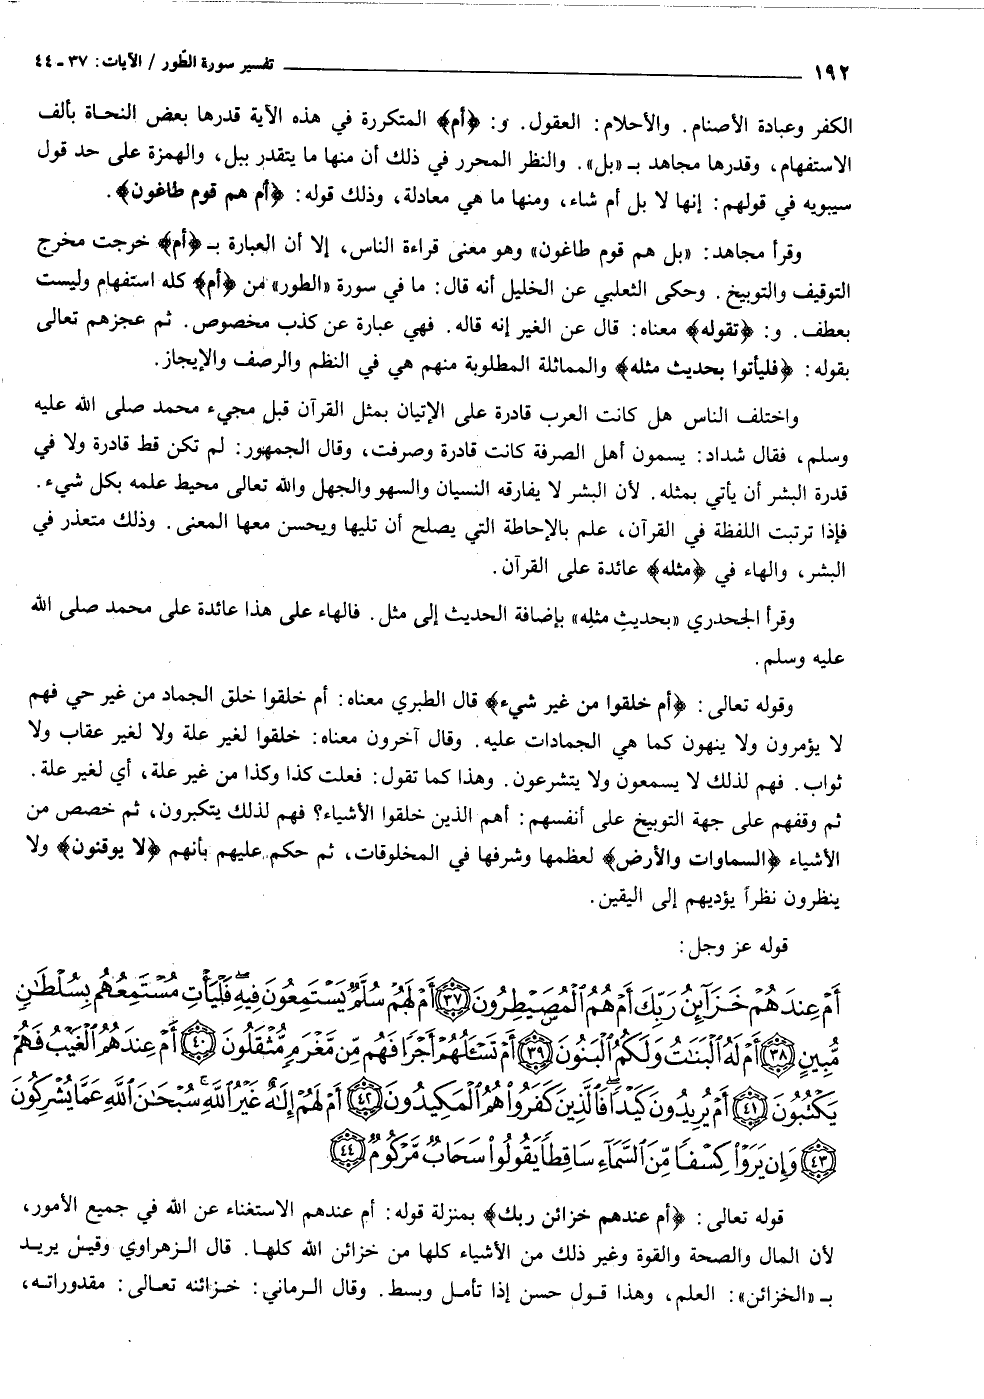 ١٩٢ تفسير سورة الطّور / الآيات: ٣٧ - ٤٤
الكفر وعبادة الأصنام. والأحلام: العقول. و: ﴿أم﴾ المتكررة في هذه الآية قدرها بعض النحاة بألف
الاستفهام، وقدرها مجاهد بـ «بل». والنظر المحرر في ذلك أن منها ما يتقدر ببل، والهمزة على حد قول
سيبويه في قولهم: إنها لا بل أم شاء، ومنها ما هي معادلة، وذلك قوله: ﴿أم هم قوم طاغون﴾.
وقرأ مجاهد: «بل هم قوم طاغون» وهو معنى قراءة الناس، إلا أن العبارة بـ ﴿أم﴾ خرجت مخرج
التوقيف والتوبيخ. وحكى الثعلبي عن الخليل أنه قال: ما في سورة «الطور» من ﴿أم﴾ كله استفهام وليست
بعطف. و: ﴿تقوله﴾ معناه: قال عن الغير إنه قاله. فهي عبارة عن كذب مخصوص. ثم عجزهم تعالى
بقوله: ﴿فليأتوا بحديث مثله﴾ والمماثلة المطلوبة منهم هي في النظم والرصف والإيجاز.
واختلف الناس هل كانت العرب قادرة على الإتيان بمثل القرآن قبل مجيء محمد صلى الله عليه
وسلم، فقال شداد: يسمون أهل الصرفة كانت قادرة وصرفت، وقال الجمهور: لم تكن قط قادرة ولا في
قدرة البشر أن يأتي بمثله. لأن البشر لا يفارقه النسيان والسهو والجهل والله تعالى محيط علمه بكل شيء.
فإذا ترتبت اللفظة في القرآن، علم بالإحاطة التي يصلح أن تليها ويحسن معها المعنى. وذلك متعذر في
البشر، والهاء في ﴿مثله﴾ عائدة على القرآن.
وقرأ الجحدري «بحديثِ مثلِه» بإضافة الحديث إلى مثل. فالهاء على هذا عائدة على محمد صلى الله
عليه وسلم.
وقوله تعالى: ﴿أم خلقوا من غير شيء﴾ قال الطبري معناه: أم خلقوا خلق الجماد من غير حي فهم
لا يؤمرون ولا ينهون كما هي الجمادات عليه. وقال آخرون معناه: خلقوا لغير علة ولا لغير عقاب ولا
ثواب. فهم لذلك لا يسمعون ولا يتشرعون. وهذا كما تقول: فعلت كذا وكذا من غير علة، أي لغير علة.
ثم وقفهم على جهة التوبيخ على أنفسهم: أهم الذين خلقوا الأشياء؟ فهم لذلك يتكبرون، ثم خصص من
الأشياء ﴿السماوات والأرض﴾ لعظمها وشرفها في المخلوقات، ثم حكم عليهم بأنهم ﴿لا يوقنون﴾ ولا
ينظرون نظراً يؤديهم إلى اليقين.
قوله عز وجل:
أَمْ عِندَهُمْ خَزَآئِنُ رَبِّكَ أَمْ هُمُ ٱلْمُصَۣيْطِرُونَ ٣٧ أَمْ لَهُمْ سُلَّمٌ يَسْتَمِعُونَ فِيهِ ۖ فَلْيَأْتِ مُسْتَمِعُهُم بِسُلْطَٰنٍ
مُّبِينٍ ٣٨ أَمْ لَهُ ٱلْبَنَٰتُ وَلَكُمُ ٱلْبَنُونَ ٣٩ أَمْ تَسْـَٔلُهُمْ أَجْرًا فَهُم مِّن مَّغْرَمٍ مُّثْقَلُونَ ٤٠ أَمْ عِندَهُمُ ٱلْغَيْبُ فَهُمْ
يَكْتُبُونَ ٤١ أَمْ يُرِيدُونَ كَيْدًا ۖ فَٱلَّذِينَ كَفَرُوا۟ هُمُ ٱلْمَكِيدُونَ ٤٢ أَمْ لَهُمْ إِلَٰهٌ غَيْرُ ٱللَّهِ ۚ سُبْحَٰنَ ٱللَّهِ عَمَّا يُشْرِكُونَ
٤٣ وَإِن يَرَوْا۟ كِسْفًا مِّنَ ٱلسَّمَآءِ سَاقِطًا يَقُولُوا۟ سَحَابٌ مَّرْكُومٌ ٤٤
قوله تعالى: ﴿أم عندهم خزائن ربك﴾ بمنزلة قوله: أم عندهم الاستغناء عن الله في جميع الأمور،
لأن المال والصحة والقوة وغير ذلك من الأشياء كلها من خزائن الله كلها. قال الزهراوي وقيل يريد
بـ «الخزائن»: العلم، وهذا قول حسن إذا تأمل وبسط. وقال الرماني: خزائنه تعالى: مقدوراته،